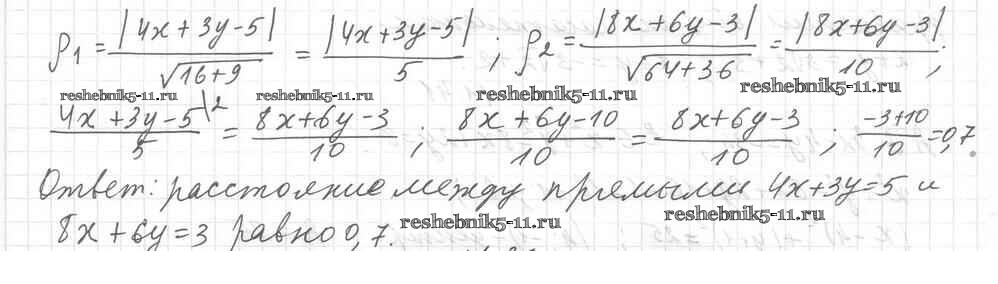 ρ₁ = |4x + 3y - 5| / √(16+9) = |4x+3y-5| / 5 ; ρ₂ = |8x + 6y - 3| / √(64+36) = |8x+6y-3| / 10 ;
reshebnik5-11.ru reshebnik5-11.ru reshebnik5-11.ru reshebnik5-11.ru
(4x + 3y - 5) \2 / 5 = (8x + 6y - 3) / 10 ; (8x + 6y - 10) / 10 = (8x + 6y - 3) / 10 ; (-3 + 10) / 10 = 0,7.
Ответ: расстояние между прямыми 4x+3y=5 и
reshebnik5-11.ru reshebnik5-11.ru
8x + 6y = 3 равно 0,7.